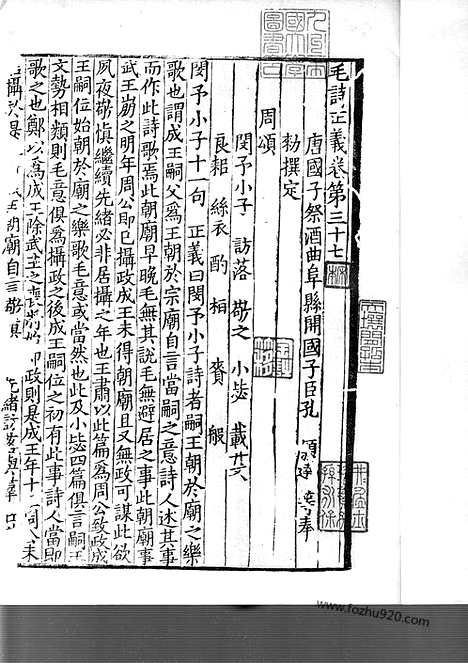 毛詩正義卷第三十七
唐國子祭酒曲阜縣開國子臣孔 穎達 等奉
勑撰定
周頌
閔予小子 訪落 敬之 小毖 載芟
良耜 絲衣 酌 桓 賚 般
閔予小子十一句 正義曰閔予小子詩者嗣王朝於廟之樂
歌也謂成王嗣父爲王朝於宗廟自言當嗣之意詩人述其事
而作此詩歌焉此朝廟早晚毛無其說毛無避居之事此朝廟事
武王崩之明年周公即已攝政成王未得朝廟且又無政可謀此欲
夙夜敬慎繼續先緒必非居攝之年也王肅以此篇爲周公致政成
王嗣位始朝於廟之樂歌毛意或當然也此及小毖四篇俱言嗣王
文勢相類則毛意俱爲攝政之後成王嗣位之初有此事詩人當即
歌之也鄭以爲成王除武王之喪將始即政則是成王年十三周公未
攝 是 王朝廟自言敬 緒 羣
www.fozhu920.com